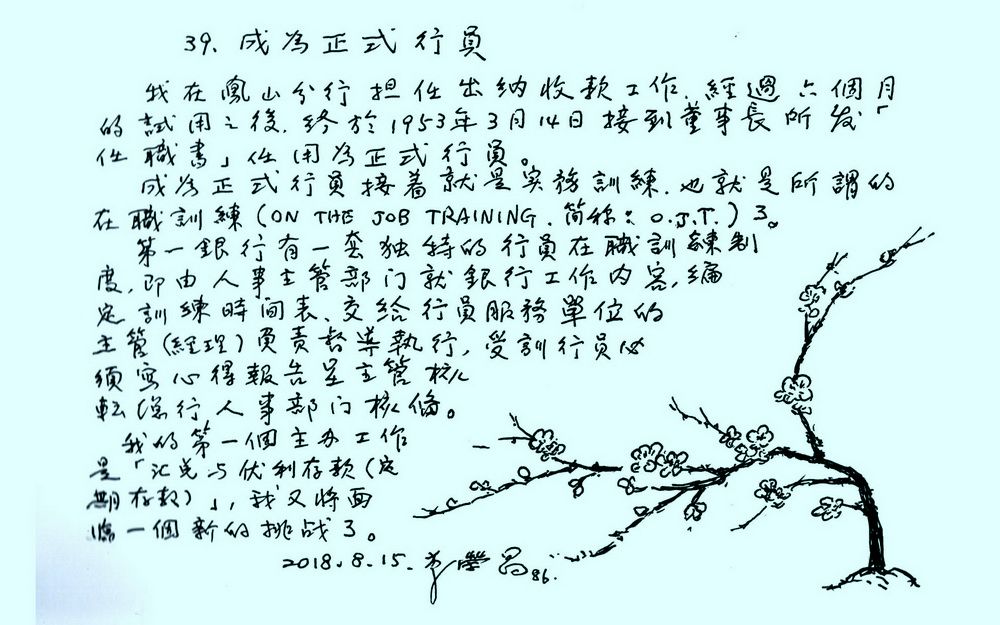 39. 成為正式行員
我在鳳山分行担任出納收款工作.經過六個月
的試用之後.終於1953年3月14日接到董事長所发「
任職書」任用為正式行員。
成为正式行員接着就是实務訓練.也就是所謂的
在職訓練(ON THE JOB TRAINING.简称:O.J.T.)了。
第一銀行有一套独特的行員在職訓練制
度,即由人事主管部门就銀行工作内容,编
定訓練時間表.交給行員服務單位的
主管(經理)負责督導執行,受訓行員必
須寫心得報告呈主管核化
転總行人事部门核偹。
我的第一個主办工作
是「汇兑与优利存款(定
期存款)」,我又将面
临一個新的挑战了。
2018.8.15. 86.